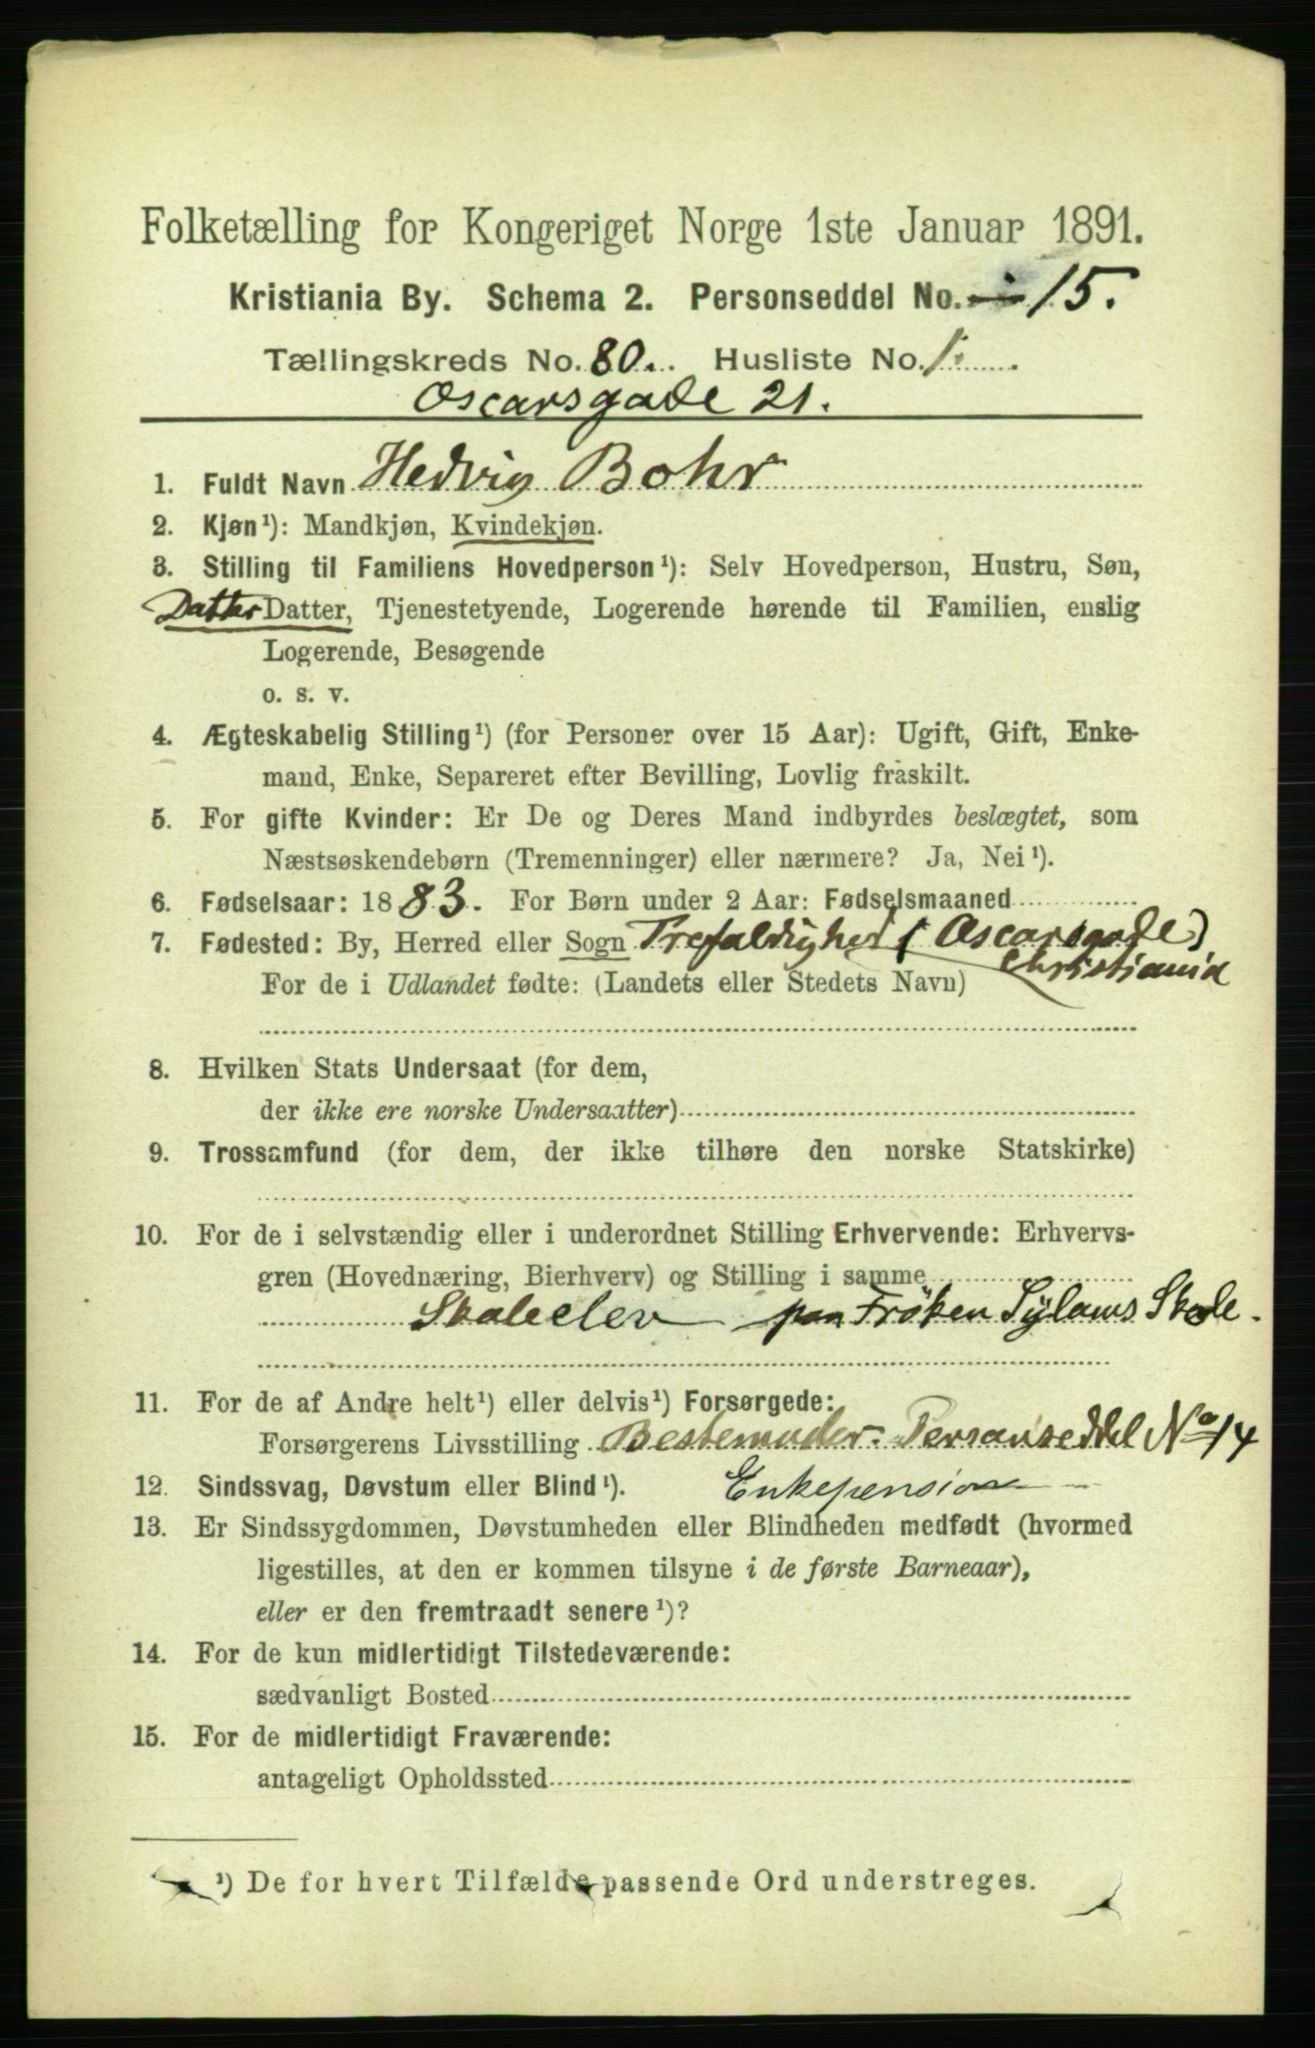 Folketælling for Kongeriget Norge 1ste Januar 1891.
Kristiania By. Schema 2. Personseddel No. 15.
Tællingskreds No. 80. Husliste No. 1.
Oscarsgade 21.
1. Fuldt Navn Hedvig Bohr
2. Kjøn¹): Mandkjøn, Kvindekjøn.
3. Stilling til Familiens Hovedperson¹): Selv Hovedperson, Hustru, Søn,
Datter Datter, Tjenestetyende, Logerende hørende til Familien, enslig
Logerende, Besøgende
o. s. v.
4. Ægteskabelig Stilling¹) (for Personer over 15 Aar): Ugift, Gift, Enke-
mand, Enke, Separeret efter Bevilling, Lovlig fraskilt.
5. For gifte Kvinder: Er De og Deres Mand indbyrdes beslægtet, som
Næstsøskendebørn (Tremenninger) eller nærmere? Ja, Nei¹).
6. Fødselsaar: 1883. For Børn under 2 Aar: Fødselsmaaned
7. Fødested: By, Herred eller Sogn Trefaldighed (Oscarsgade)
Christiania
For de i Udlandet fødte: (Landets eller Stedets Navn)
8. Hvilken Stats Undersaat (for dem,
der ikke ere norske Undersaatter)
9. Trossamfund (for dem, der ikke tilhøre den norske Statskirke)
10. For de i selvstændig eller i underordnet Stilling Erhvervende: Erhvervs-
gren (Hovednæring, Bierhverv) og Stilling i samme
Skoleelev paa Frøken Sylams Skole.
11. For de af Andre helt¹) eller delvis¹) Forsørgede:
Forsørgerens Livsstilling Bestemoder. Personseddel No 14
12. Sindssvag, Døvstum eller Blind¹). Enkepension
13. Er Sindssygdommen, Døvstumheden eller Blindheden medfødt (hvormed
ligestilles, at den er kommen tilsyne i de første Barneaar),
eller er den fremtraadt senere¹)?
14. For de kun midlertidigt Tilstedeværende:
sædvanligt Bosted
15. For de midlertidigt Fraværende:
antageligt Opholdssted
¹) De for hvert Tilfælde passende Ord understreges.